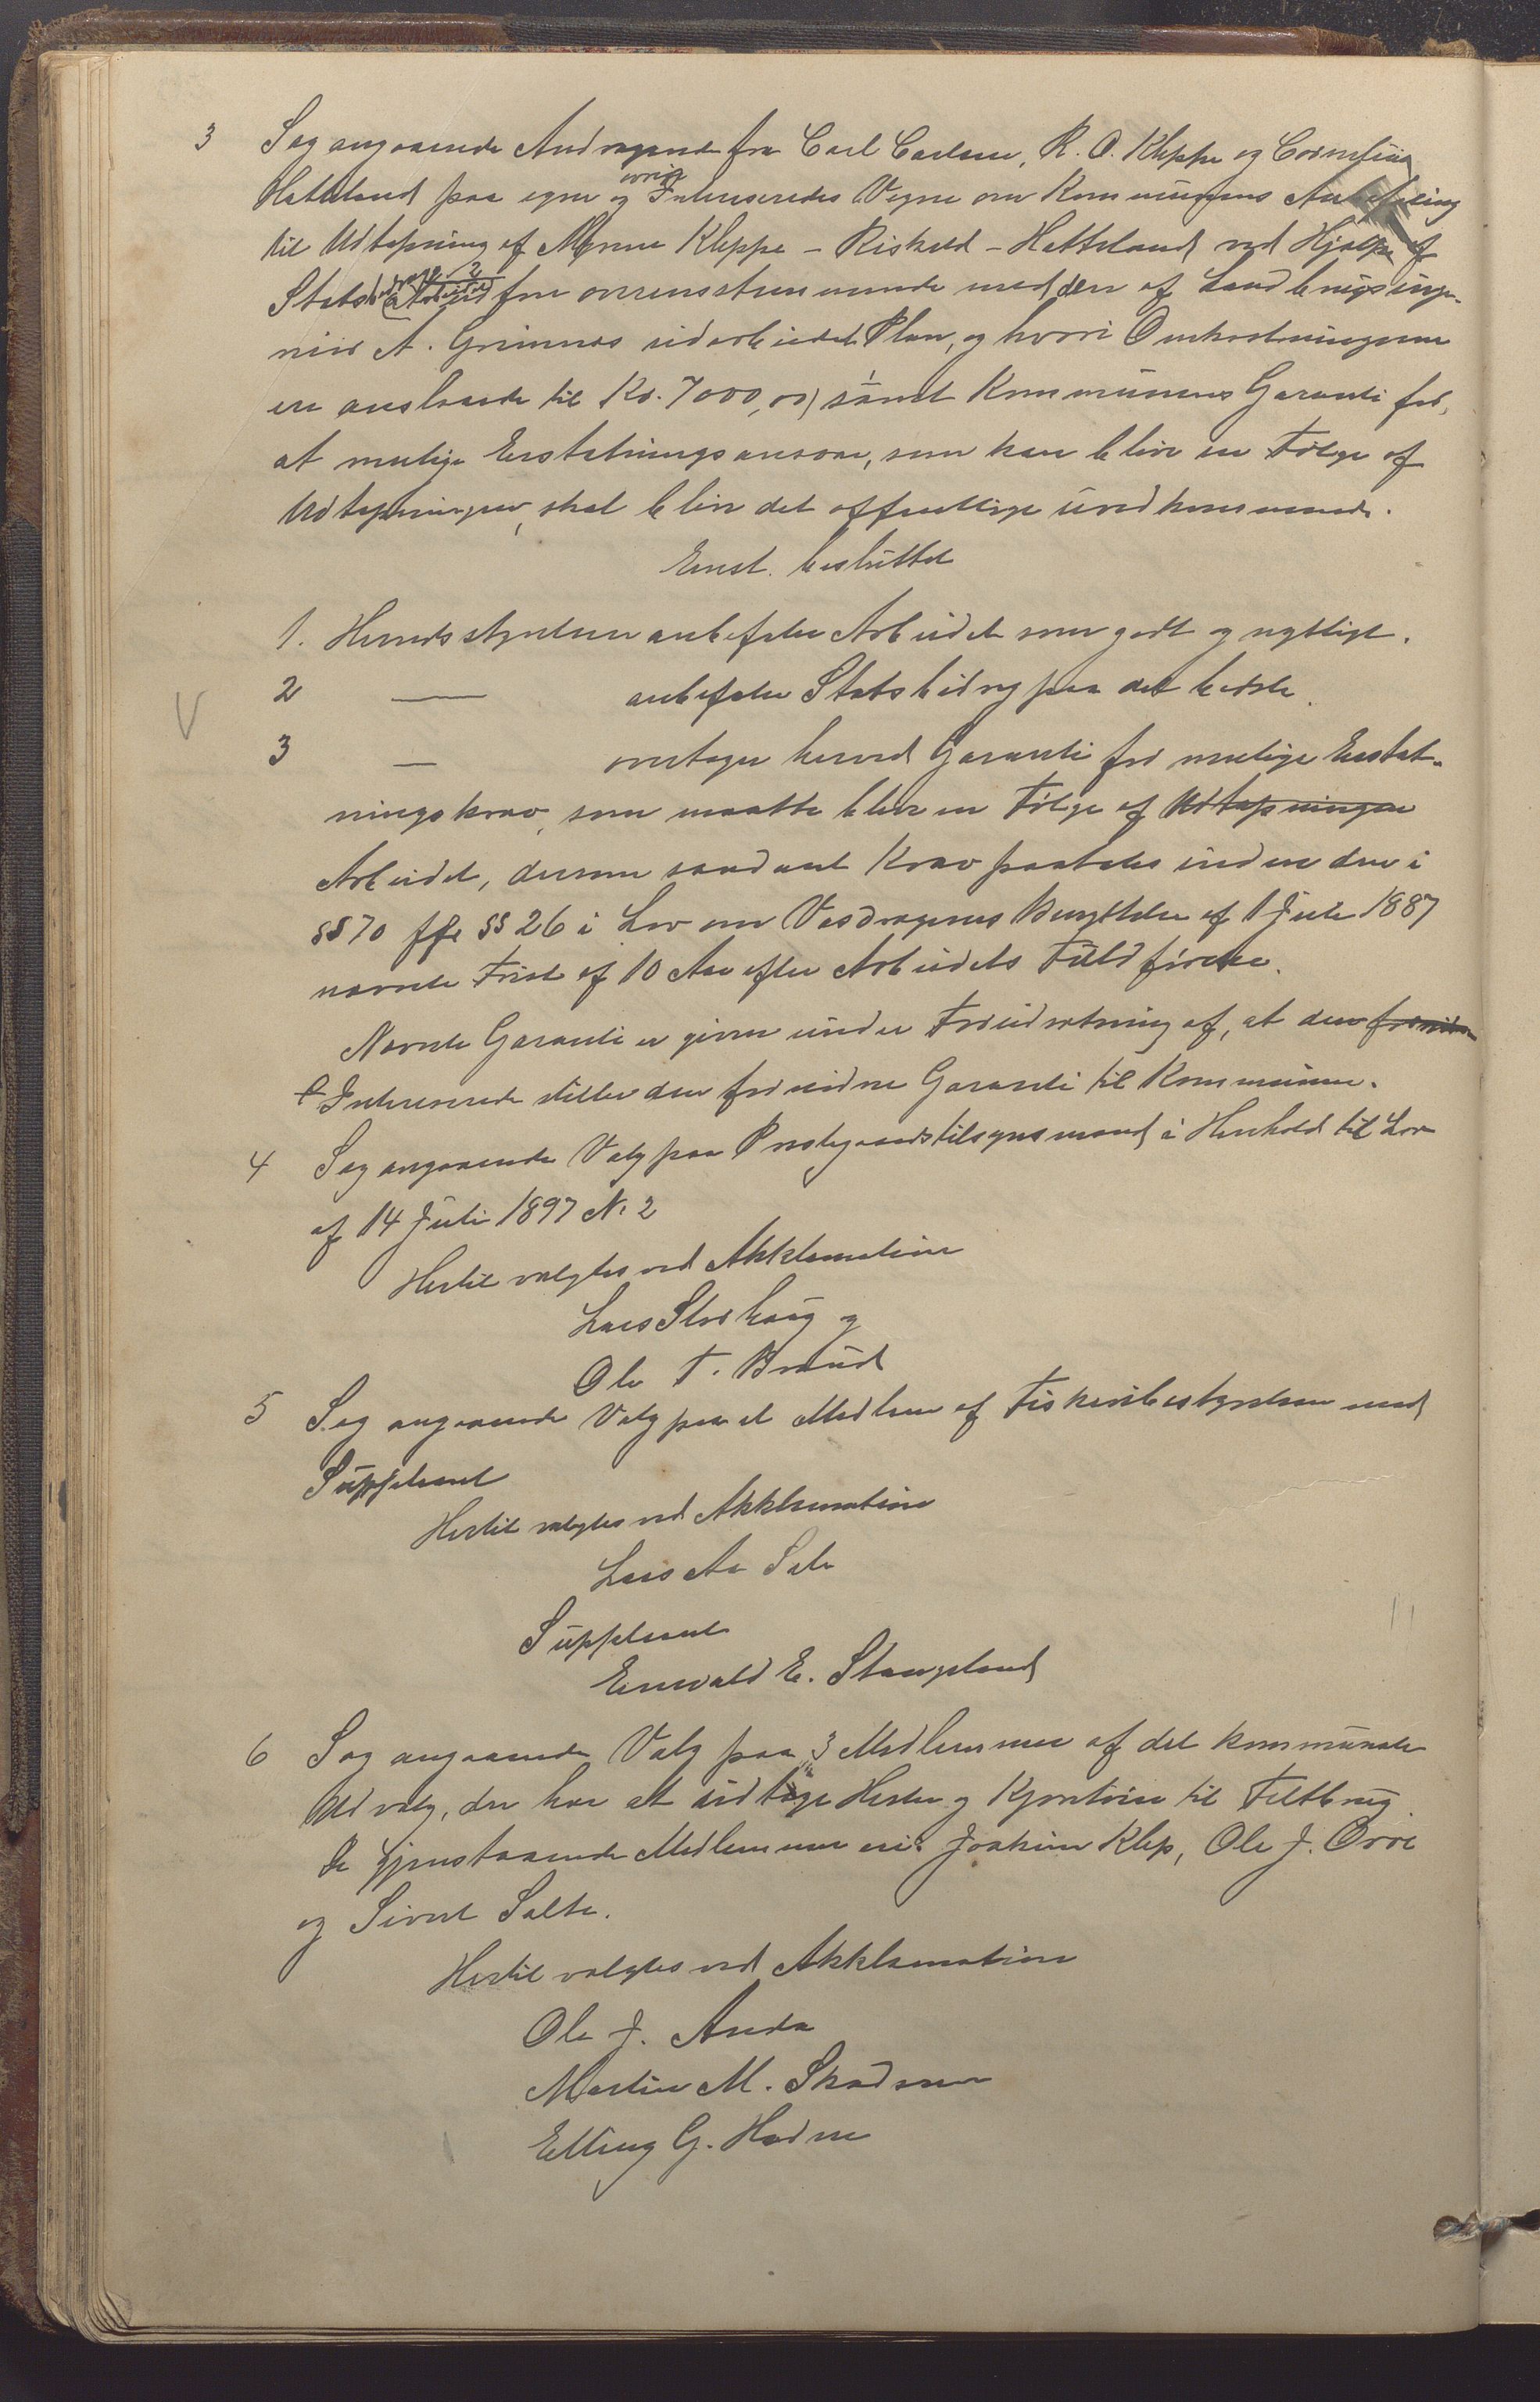 3 Sag angaaende Andragende fra Carl Carlsen, R. O. Kleppe og Cornelius
Hatteland paa egne og øvrige Interesseredes Vegne om Kommunens Anbefaling
til Udtapning af Myrene Kleppe - Riskeld - Hatteland ved Hjælp af
Statsbidrag (Arbeidet overensstemmende med den af Landbrugsinge-
niør A. Grimnes udarbeidet Plan, og hvori Omkostningerne
ere anslaaede til Kr. 7000,00) samt Kommunens Garanti for,
at mulige Erstatningsansvar, som kan blive en Følge af
Udtapningen, skal blive det offentlige uvedkommende.
Enst. besluttet
1. Herredsstyrelsen anbefaler Arbeidet som godt og nyttigt.
2 — anbefaler Statsbidrag paa det bedste.
3 — overtager herved Garanti for mulige Erstat-
ningskrav, som maatte blive en Følge af Udtapningen
Arbeidet, dersom saadant Krav paatales inden den i
§§ 70 jfr §§ 26 i Lov om Vasdragenes Benyttelse af 1 Juli 1887
nævnte Frist af 10 Aar efter Arbeidets Fuldførelse.
Nævnte Garanti er given under Forudsætning af, at den
Interesserede stiller den fornødne Garanti til Kommunen.
4 Sag angaaende Valg paa Prestegaardstilsynsmænd i Henhold til Lov
af 14 Juli 1897 N. 2
Hertil valgtes ved Akklamation
Lars Storhaug og
Ole T. Braud
5 Sag angaaende Valg paa et Medlem af Fiskeribestyrelsen med
Suppleant
Hertil valgtes ved Akklamation
Lars Aa Sele
Suppleant
Enevald E. Stangeland
6 Sag angaaende Valg paa 3 Medlemmer af det kommunale
Udvalg, der har at udtage Heste og Kjøretøier til Feltbrug.
De gjenstaaende Medlemmer ere: Joakim Klep, Ole J. Orre
og Sivert Salte.
Hertil valgtes ved Akklamation
Ole J. Anda
Martin M. Skadsem
Elling G. Hodne